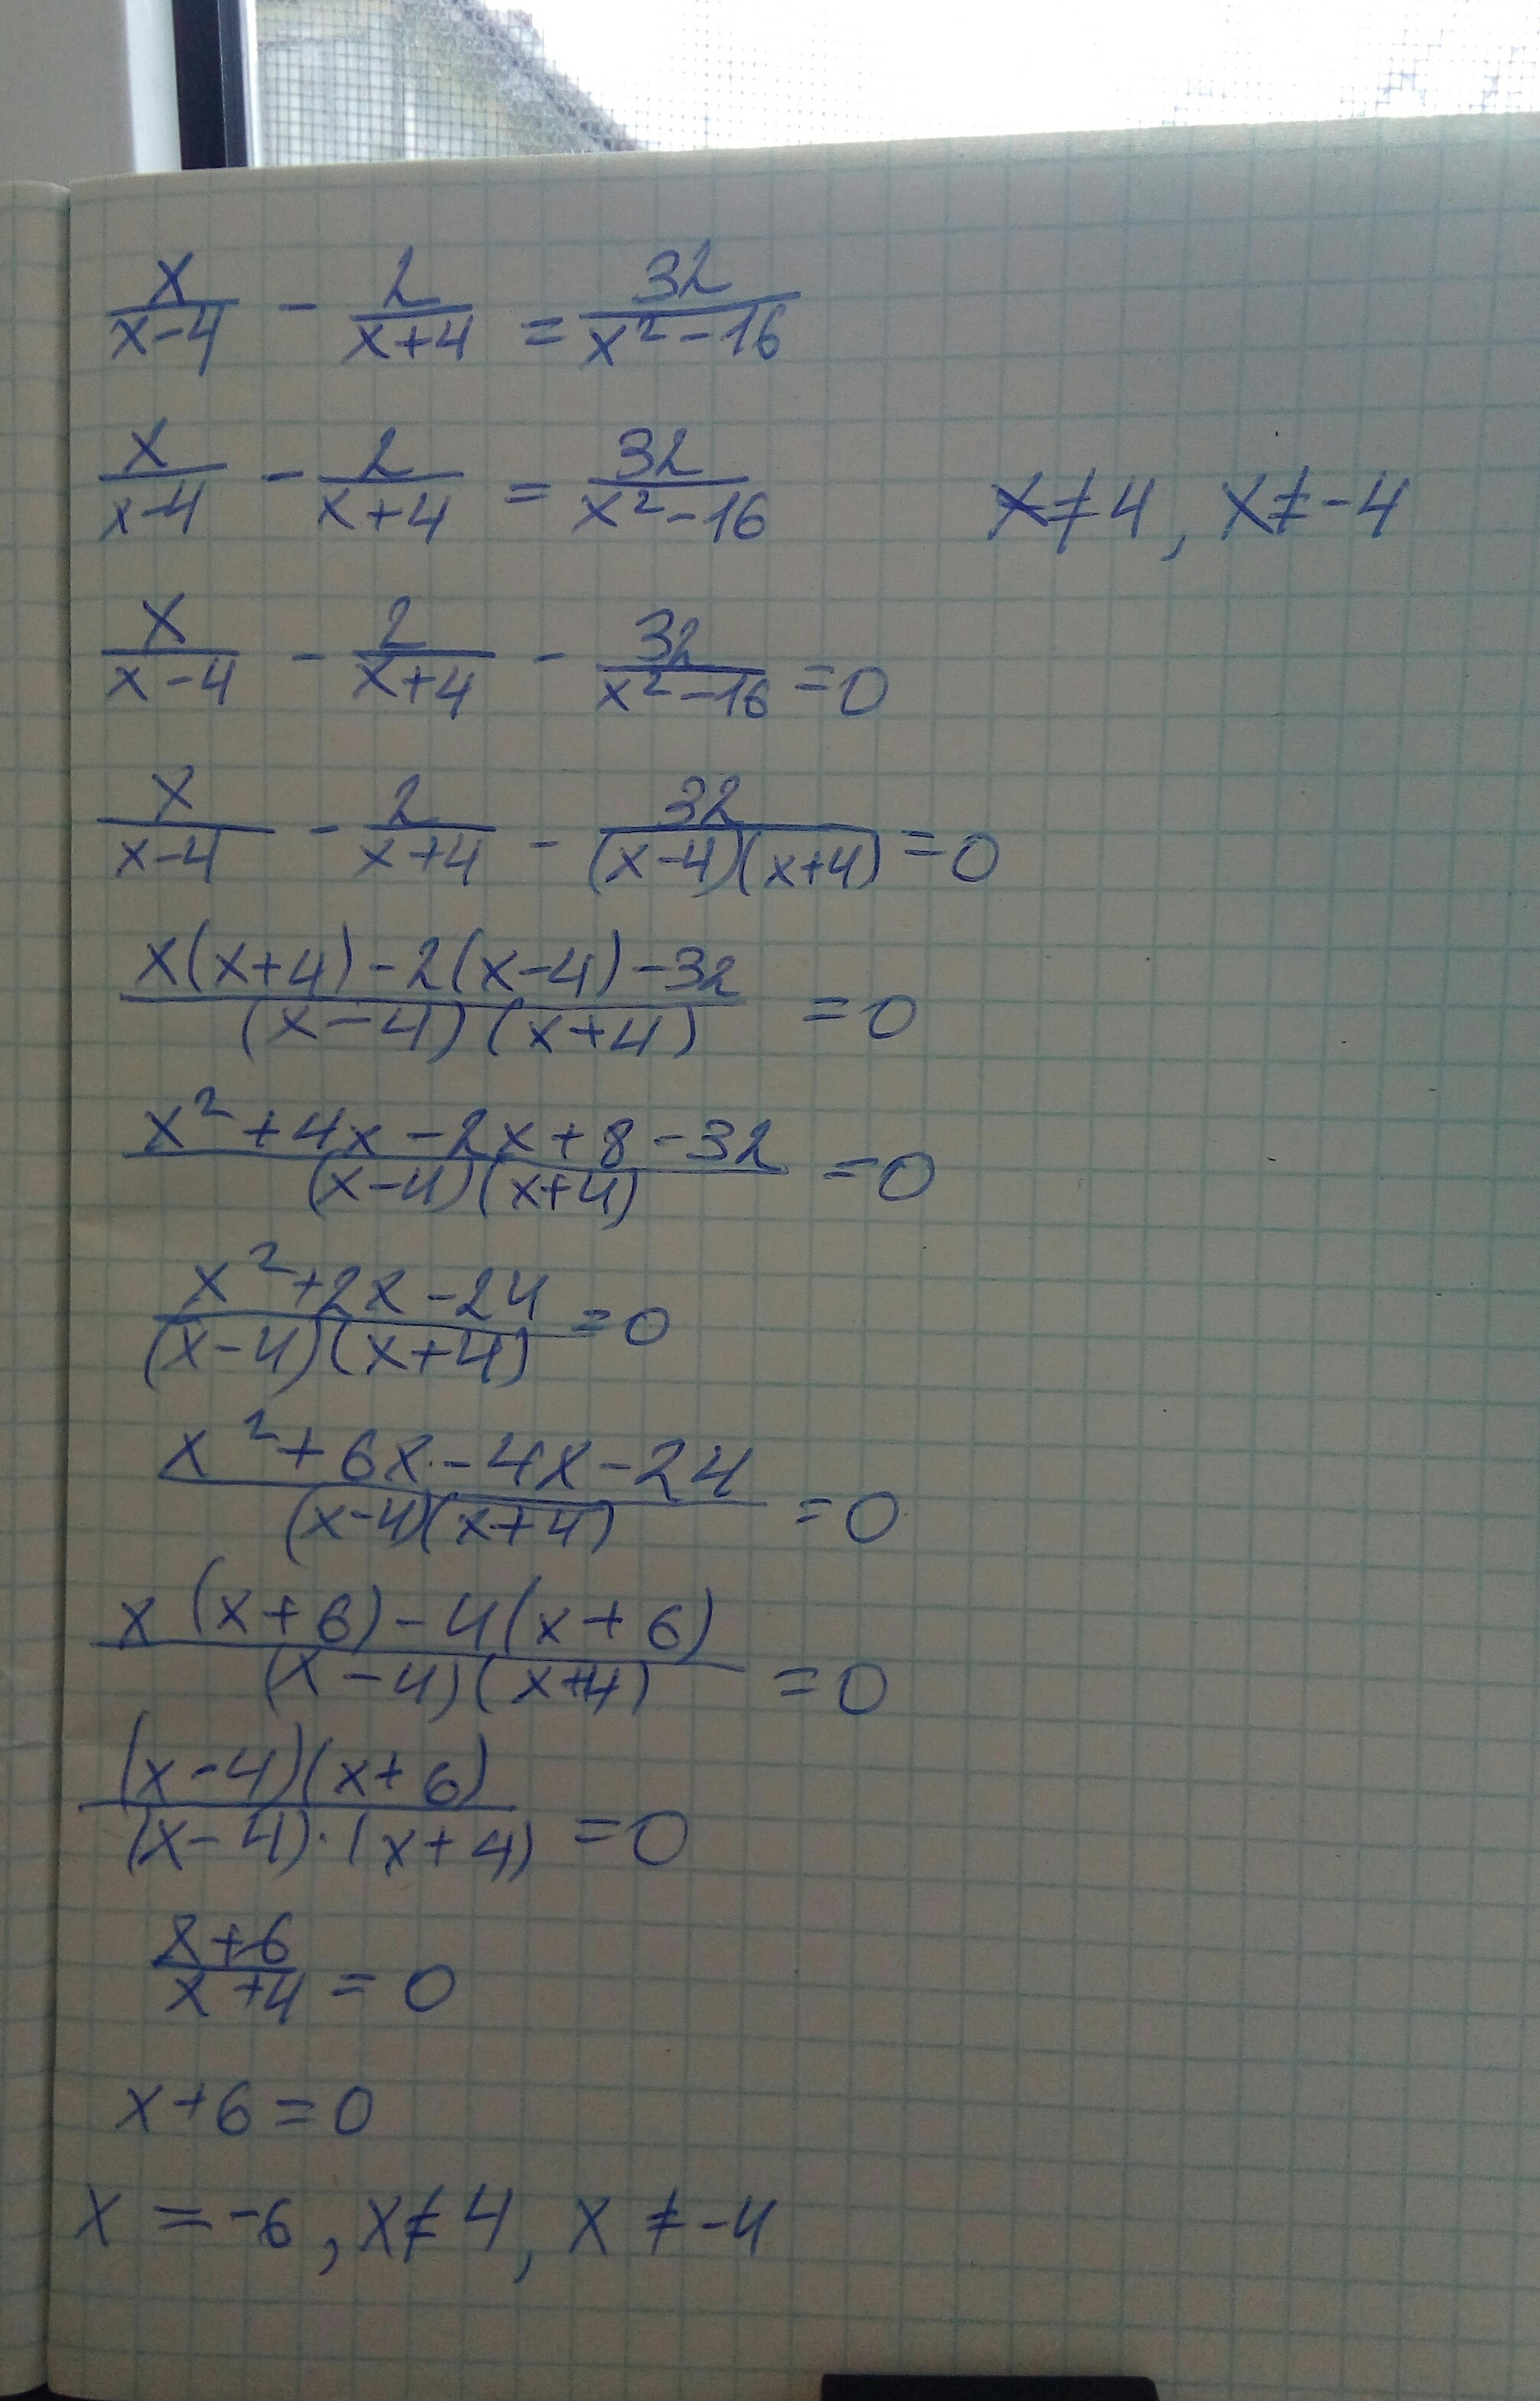 x/(x-4) - 2/(x+4) = 32/(x²-16)
x/(x-4) - 2/(x+4) = 32/(x²-16) x≠4, x≠-4
x/(x-4) - 2/(x+4) - 32/(x²-16) = 0
x/(x-4) - 2/(x+4) - 32/((x-4)(x+4)) = 0
(x(x+4)-2(x-4)-32)/((x-4)(x+4)) = 0
(x²+4x-2x+8-32)/((x-4)(x+4)) = 0
(x²+2x-24)/((x-4)(x+4)) = 0
(x²+6x-4x-24)/((x-4)(x+4)) = 0
(x(x+6)-4(x+6))/((x-4)(x+4)) = 0
((x-4)(x+6))/((x-4)·(x+4)) = 0
(x+6)/(x+4) = 0
x+6=0
x=-6, x≠4, x≠-4